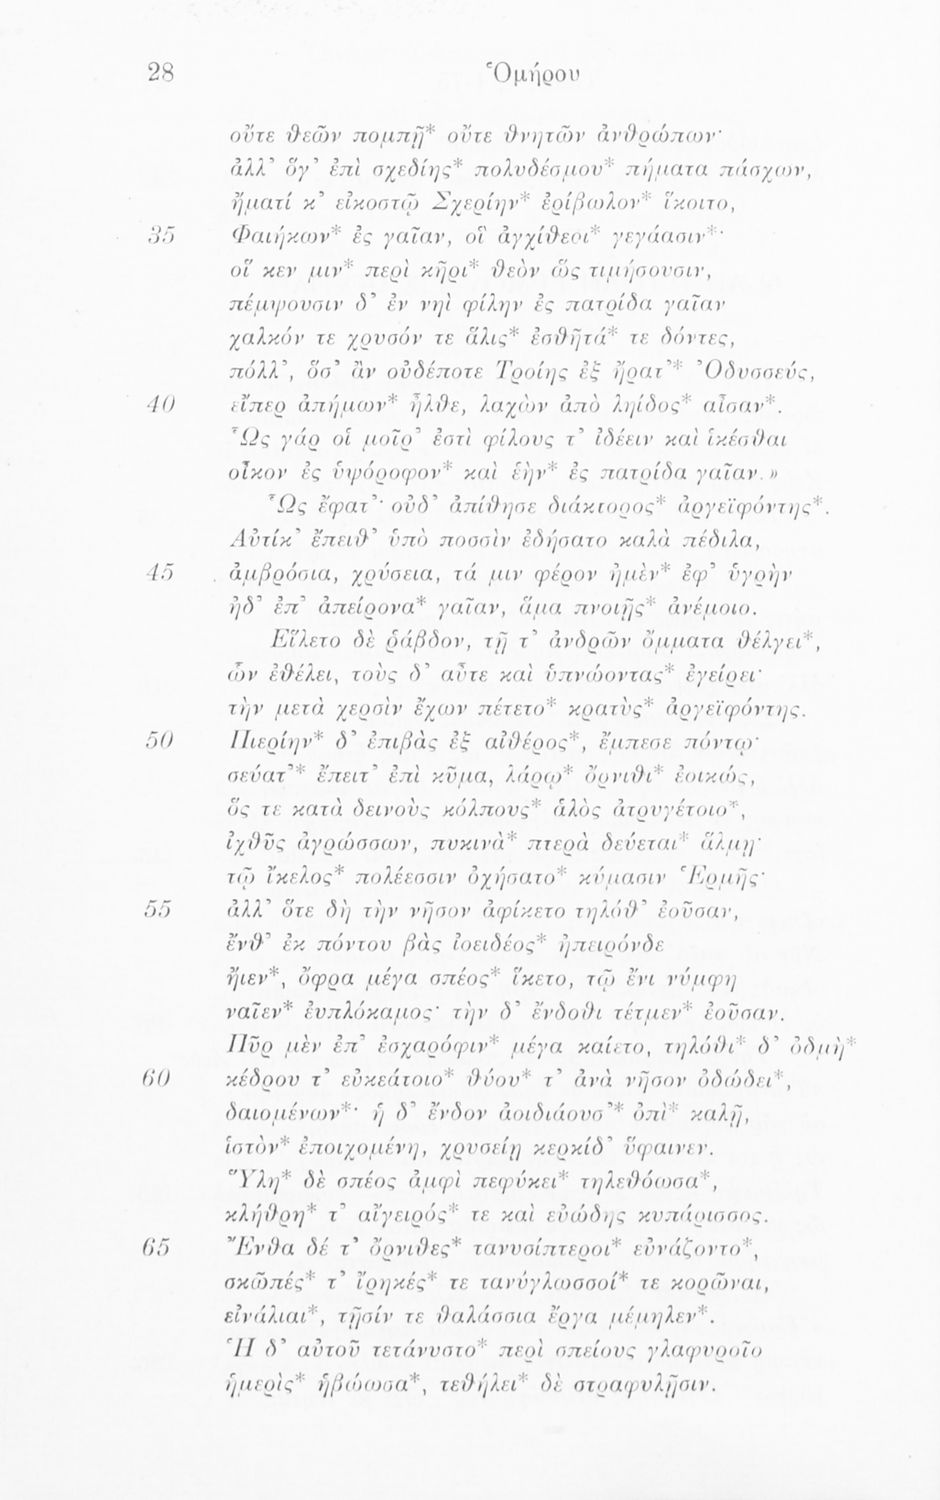 28 Ὁμήρου
οὔτε θεῶν πομπῇ* οὔτε θνητῶν ἀνθρώπων·
ἀλλ’ ὅγ’ ἐπὶ σχεδίης* πολυδέσμου* πήματα πάσχων,
ἤματί κ’ εἰκοστῷ Σχερίην* ἐρίβωλον* ἵκοιτο,
35 Φαιήκων* ἐς γαῖαν, οἳ ἀγχίθεοι* γεγάασιν*·
οἵ κεν μιν* περὶ κῆρι* θεὸν ὣς τιμήσουσιν,
πέμψουσιν δ’ ἐν νηῒ φίλην ἐς πατρίδα γαῖαν
χαλκόν τε χρυσόν τε ἅλις* ἐσθῆτά* τε δόντες,
πόλλ’, ὅσ’ ἂν οὐδέποτε Τροίης ἐξ ἤρατ’* Ὀδυσσεύς,
40 εἴπερ ἀπήμων* ἦλθε, λαχὼν ἀπὸ ληίδος* αἶσαν*.
Ὣς γάρ οἱ μοῖρ’ ἐστὶ φίλους τ’ ἰδέειν καὶ ἱκέσθαι
οἶκον ἐς ὑψόροφον* καὶ ἑὴν* ἐς πατρίδα γαῖαν.»
Ὣς ἔφατ’· οὐδ’ ἀπίθησε διάκτορος* ἀργεϊφόντης*.
Αὐτίκ’ ἔπειθ’ ὑπὸ ποσσὶν ἐδήσατο καλὰ πέδιλα,
45 ἀμβρόσια, χρύσεια, τά μιν φέρον ἠμὲν* ἐφ’ ὑγρὴν
ἠδ’ ἐπ’ ἀπείρονα* γαῖαν, ἅμα πνοιῇς* ἀνέμοιο.
Εἵλετο δὲ ῥάβδον, τῇ τ’ ἀνδρῶν ὄμματα θέλγει*,
ὧν ἐθέλει, τοὺς δ’ αὖτε καὶ ὑπνώοντας* ἐγείρει·
τὴν μετὰ χερσὶν ἔχων πέτετο* κρατὺς* ἀργεϊφόντης.
50 Πιερίην* δ’ ἐπιβὰς ἐξ αἰθέρος*, ἔμπεσε πόντῳ·
σεύατ’* ἔπειτ’ ἐπὶ κῦμα, λάρῳ* ὄρνιθι* ἐοικώς,
ὅς τε κατὰ δεινοὺς κόλπους* ἁλὸς ἀτρυγέτοιο*,
ἰχθῦς ἀγρώσσων, πυκινὰ* πτερὰ δεύεται* ἅλμῃ·
τῷ ἴκελος* πολέεσσιν ὀχήσατο* κύμασιν Ἑρμῆς·
55 ἀλλ’ ὅτε δὴ τὴν νῆσον ἀφίκετο τηλόθ’ ἐοῦσαν,
ἔνθ’ ἐκ πόντου βὰς ἰοειδέος* ἠπειρόνδε
ἤιεν*, ὄφρα μέγα σπέος* ἵκετο, τῷ ἔνι νύμφη
ναῖεν* ἐυπλόκαμος· τὴν δ’ ἔνδοθι τέτμεν* ἐοῦσαν.
Πῦρ μὲν ἐπ’ ἐσχαρόφιν* μέγα καίετο, τηλόθι* δ’ ὀδμὴ*
60 κέδρου τ’ εὐκεάτοιο* θύου* τ’ ἀνὰ νῆσον ὀδώδει*,
δαιομένων*· ἡ δ’ ἔνδον ἀοιδιάουσ’* ὀπὶ* καλῇ,
ἱστὸν* ἐποιχομένη, χρυσείῃ κερκίδ’ ὕφαινεν.
Ὕλη* δὲ σπέος ἀμφὶ πεφύκει* τηλεθόωσα*,
κλήθρη* τ’ αἴγειρός* τε καὶ εὐώδης κυπάρισσος.
65 Ἔνθα δέ τ’ ὄρνιθες* τανυσίπτεροι* εὐνάζοντο*,
σκῶπές* τ’ ἴρηκές* τε τανύγλωσσοί* τε κορῶναι,
εἰνάλιαι*, τῇσίν τε θαλάσσια ἔργα μέμηλεν*.
Ἡ δ’ αὐτοῦ τετάνυστο* περὶ σπείους γλαφυροῖο
ἡμερὶς* ἡβώωσα*, τεθήλει* δὲ σταφυλῇσιν.